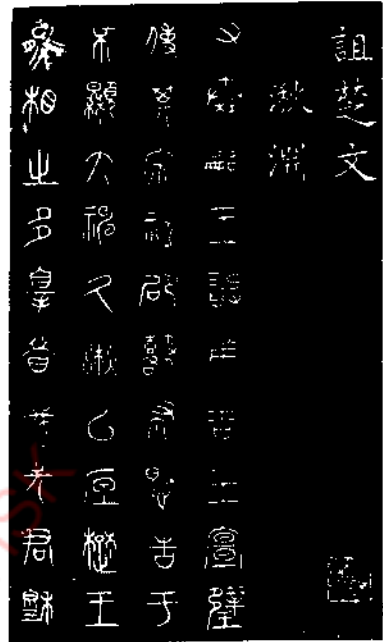 詛楚文
湫淵
又秦嗣王敢用吉玉宣璧
使其宗祝邵鼛布憝告于
不顯大神久湫㠯亙楚王
熊相之多辠昔我先君穆